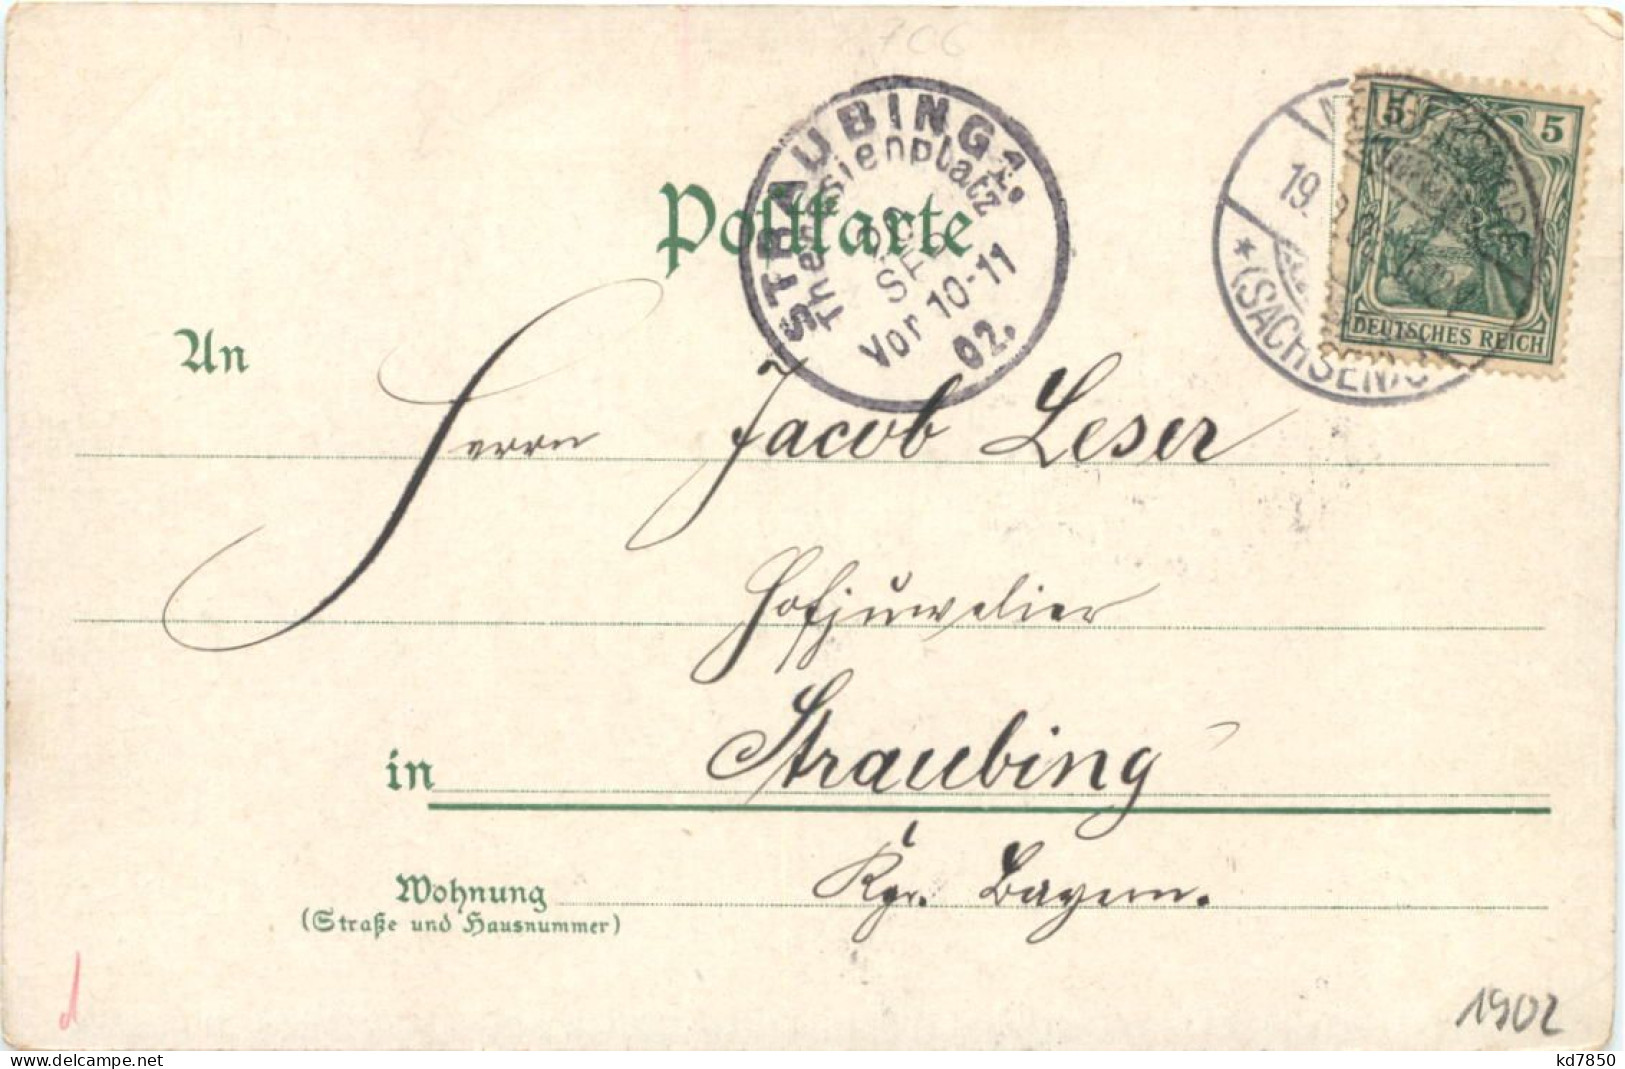 Postkarte
STRAUBING 1.
Theresienplatz
SEP
Vor 10-11
02.
19.
(SACHSEN)
5 5
DEUTSCHES REICH
An
Herrn Jacob Leser
Hofjuwelier
in Straubing
Kgr. Bayern.
Wohnung
(Straße und Hausnummer)
1902
www.delcampe.net
kd7850